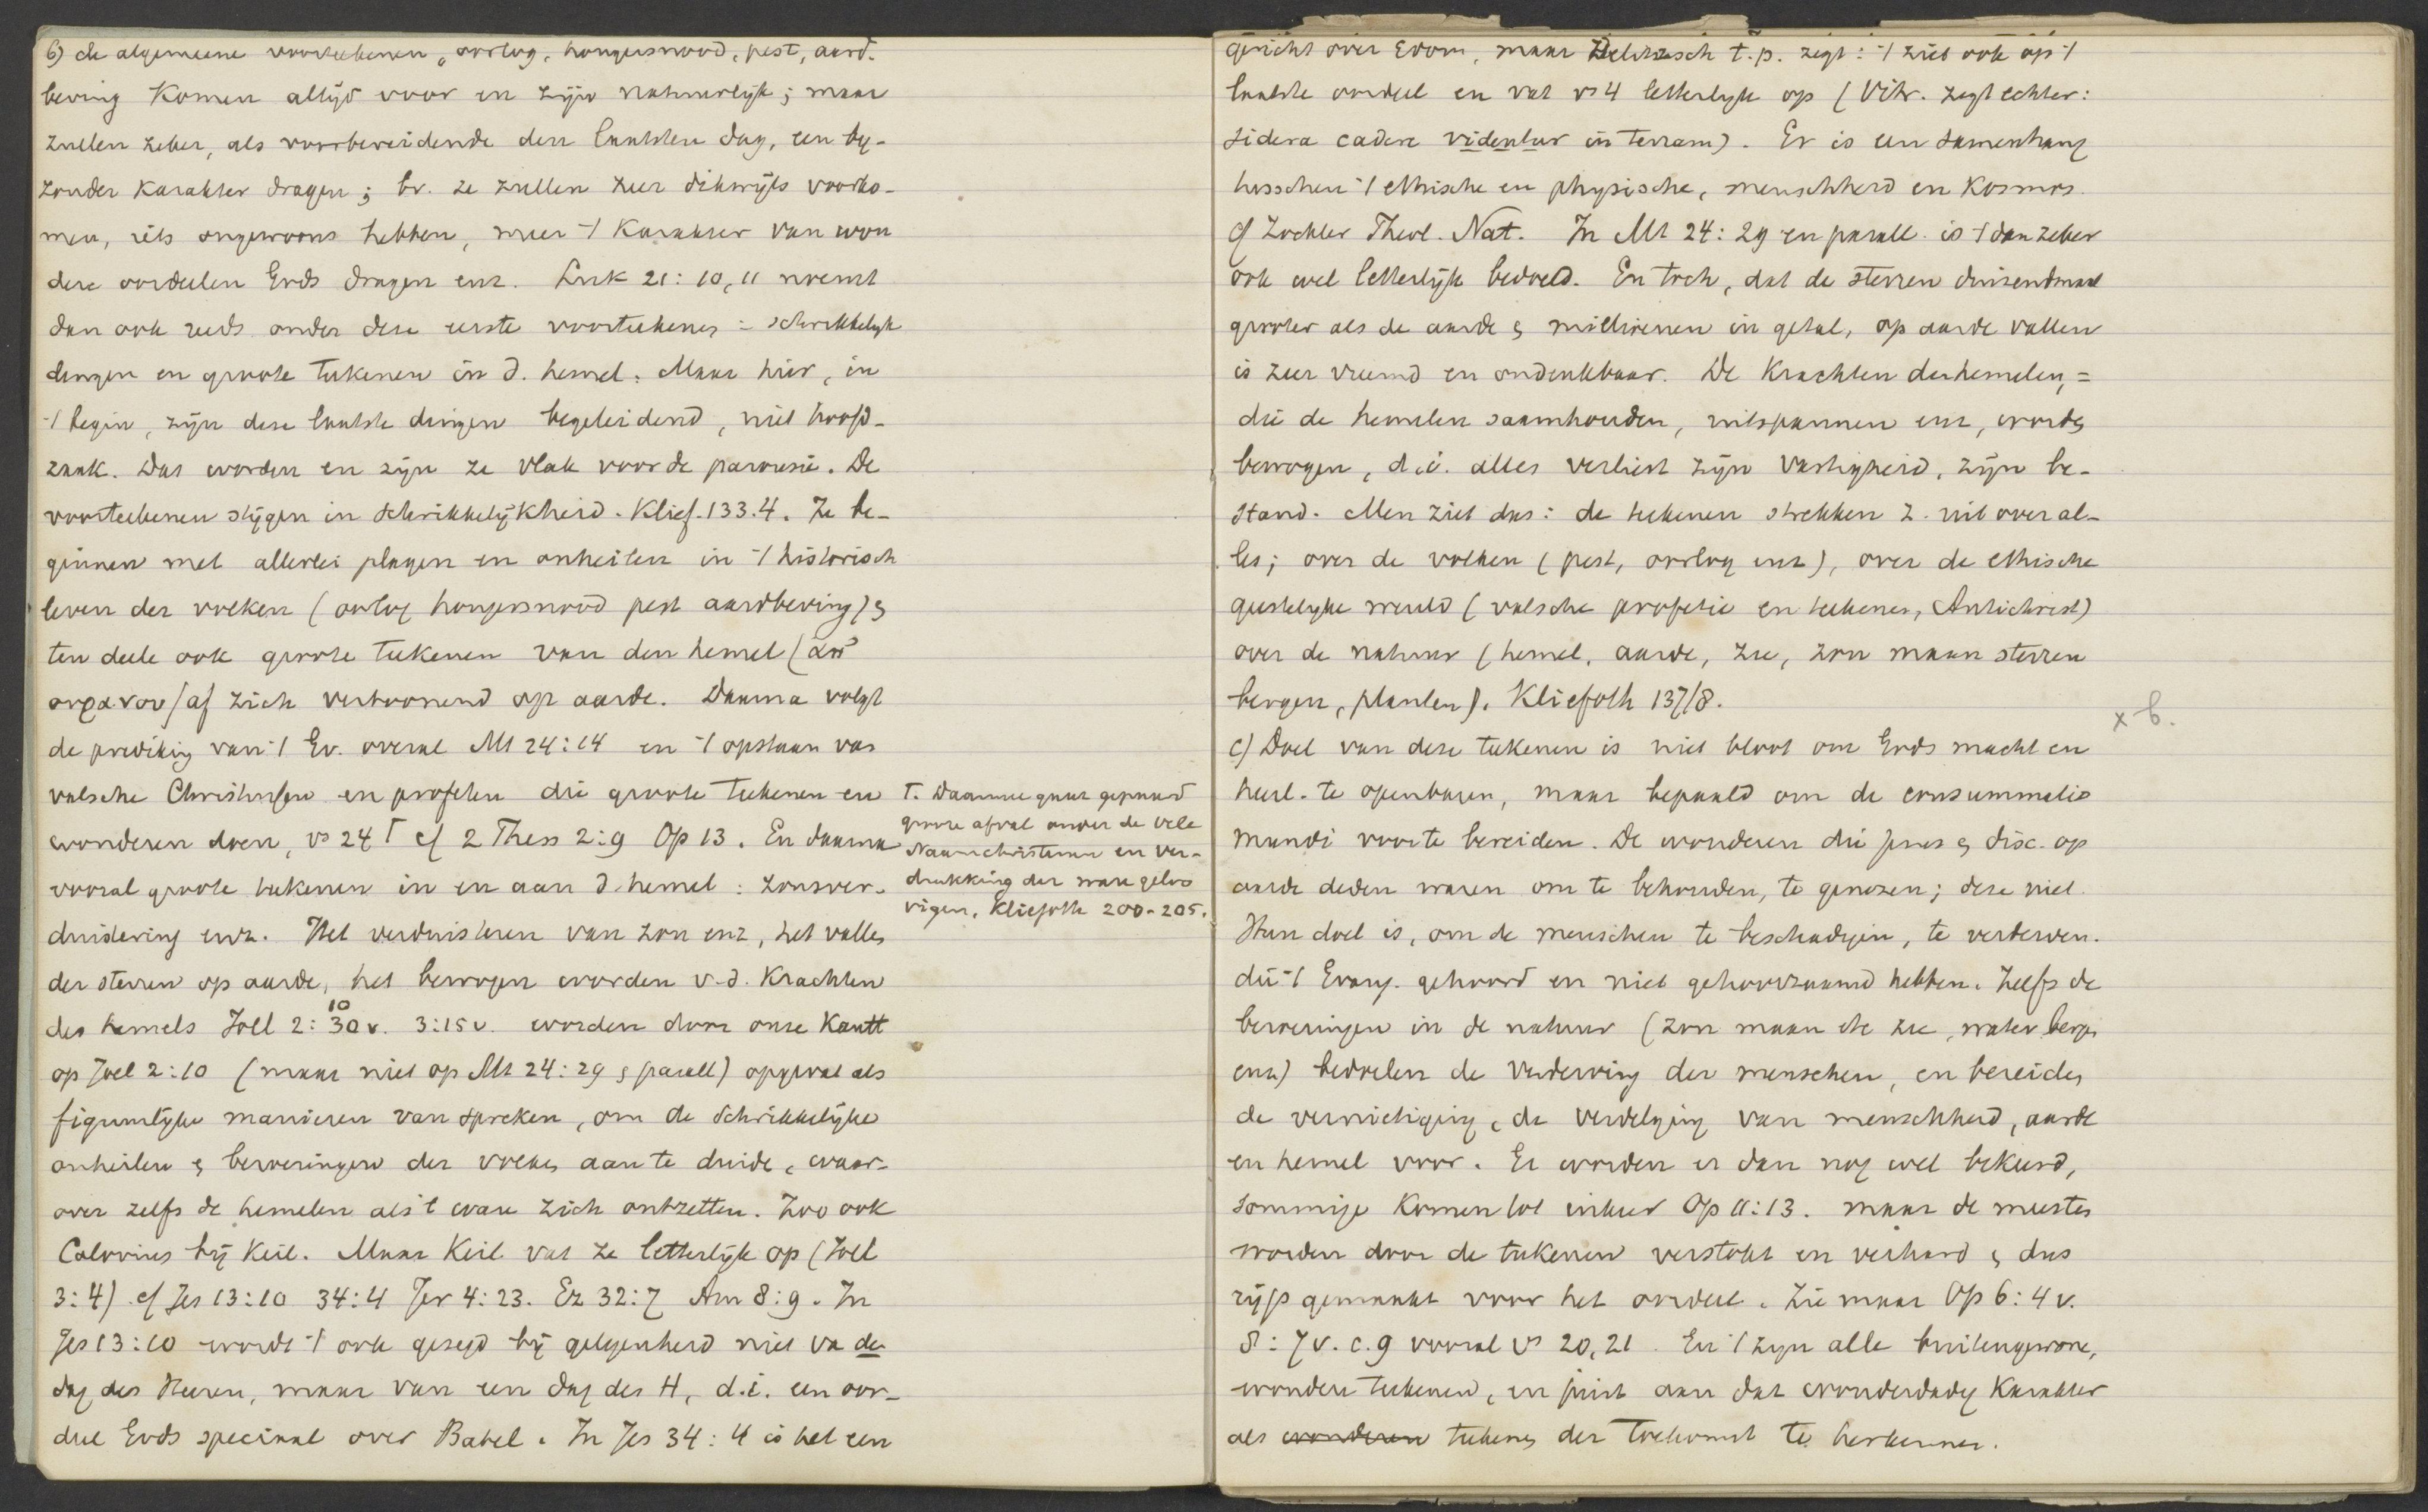 b) de algemeene voorteekenen, oorlog, hongersnood, pest, aard-
beving komen altijd voor en zijn natuurlijk; maar
zullen zeker, als voorbereidende den laatsten dag, een by-
zonder karakter dragen; bv. ze zullen zeer dikwijls voorko-
men, iets ongewoons hebben, meer 't karakter van won
dere oordeelen Gods dragen enz. Luk 21:10,11 noemt
dan ook reeds onder deze eerste voorteekenen = schrikkelyk
dingen en groote teekenen in d. hemel. Maar hier, in
't begin, zijn deze laatste dingen begeleidend, niet hoofd-
zaak. Dat worden en zijn ze vlak voor de parousie. De
voorteekenen stijgen in schrikkelijkheid. Klief. 133.4. Ze be-
ginnen met allerlei plagen en onheilen in 't historisch
leven der volken (oorlog hongersnood pest aardbeving) &
ten deele ook groote teekenen van den hemel (ἀπ'
ουρανου) af zich vertoonend op aarde. Daarna volgt
de prediking van 't Ev. overal Mt 24:14 en 't opstaan van
valsche Christussen en profeten die groote teekenen en
wonderen doen, vs 24 Γ cf 2 Thess 2:9 Op 13. En daarna
vooral groote teekenen in en aan d. hemel: zonsver-
duistering enz. Het verduisteren van zon enz, het vallen
der sterren op aarde, het bewogen worden v.d. krachten
des hemels Joël 2:10 30v. 3:15v. worden door onze Kantt
op Joel 2:10 (maar niet op Mt 24:29 & parall) opgevat als
figuurlijke manieren van spreken, om de schrikkelijke
onheilen & beroeringen der volken aan te duiden, waar-
over zelfs de hemelen als 't ware zich ontzetten. Zoo ook
Calovius bij Keil. Maar Keil vat ze letterlijk op (Joel
3:4) cf Jes 13:10 34:4 Jer 4:23. Ez 32:7 Am 8:9. In
Jes 13:10 wordt 't ook gezegd bij gelegenheid niet va den
dag des Heeren, maar van een dag des H, d.i. een oor-
deel Gods speciaal over Babel. In Jes 34:4 is het een
Γ. Daarmee gaat gepaard
groote afval onder de vele
Naamchristenen en ver-
drukking der ware geloo
vigen. Kliefoth 200-205.
gericht over Edom, maar Delitzsch t.p. zegt: 't ziet ook op 't
laatste oordeel en vat vs 4 letterlyk op (Vitr. zegt echter:
sidera cadere videntur in terram). Er is een samenhang
tusschen 't ethische en physische, menschheid en kosmos.
cf Zockler Theol. Nat. In Mt 24:29 en parall. is 't dan zeker
ook wel letterlijk bedoeld. En toch, dat de sterren duizendmaal
grooter als de aarde & millioenen in getal, op aarde vallen
is zeer vreemd en ondenkbaar. De krachten der hemelen, =
die de hemelen saamhouden, uitspannen enz, worden
bewogen, d.i. alles verliest zijn vastigheid, zijn be-
stand. Men ziet dus: de teekenen strekken z. uit over al-
les; over de volken (pest, oorlog enz), over de ethische
geestelyke wereld (valsche profetie en teekenen, Antichrist)
over de natuur (hemel, aarde, zee, zon maan sterren
bergen, planten). Kliefoth 137/8.
x b.
c) Doel van deze teekenen is niet bloot om Gods macht en
heerl. te openbaren, maar bepaald om de consummatio
mundi voor te bereiden. De wonderen die Jezus & disc. op
aarde deden waren om te behouden, te genezen; deze niet.
Hun doel is, om de menschen te beschadigen, te verderven.
die 't Evang. gehoord en niet gehoorzaamd hebben. Zelfs de
beroeringen in de natuur (zon maan etc zee, water bergen
enz) bedoelen de verderving der menschen, en bereiden
de vernietiging, de verdelging van menschheid, aarde
en hemel voor. Er worden er dan nog wel bekeerd,
sommige komen tot inkeer Op 11:13. maar de meesten
worden door de teekenen verstokt en verhard & dus
rijp gemaakt voor het oordeel. Zie maar Op 6:4v.
8:7v. c.9 vooral vs 20,21. En 't zyn alle buitengewone,
wondere teekenen, en juist aan dat wonderdadig karakter
als wonderen teekenen der toekomst te herkennen.